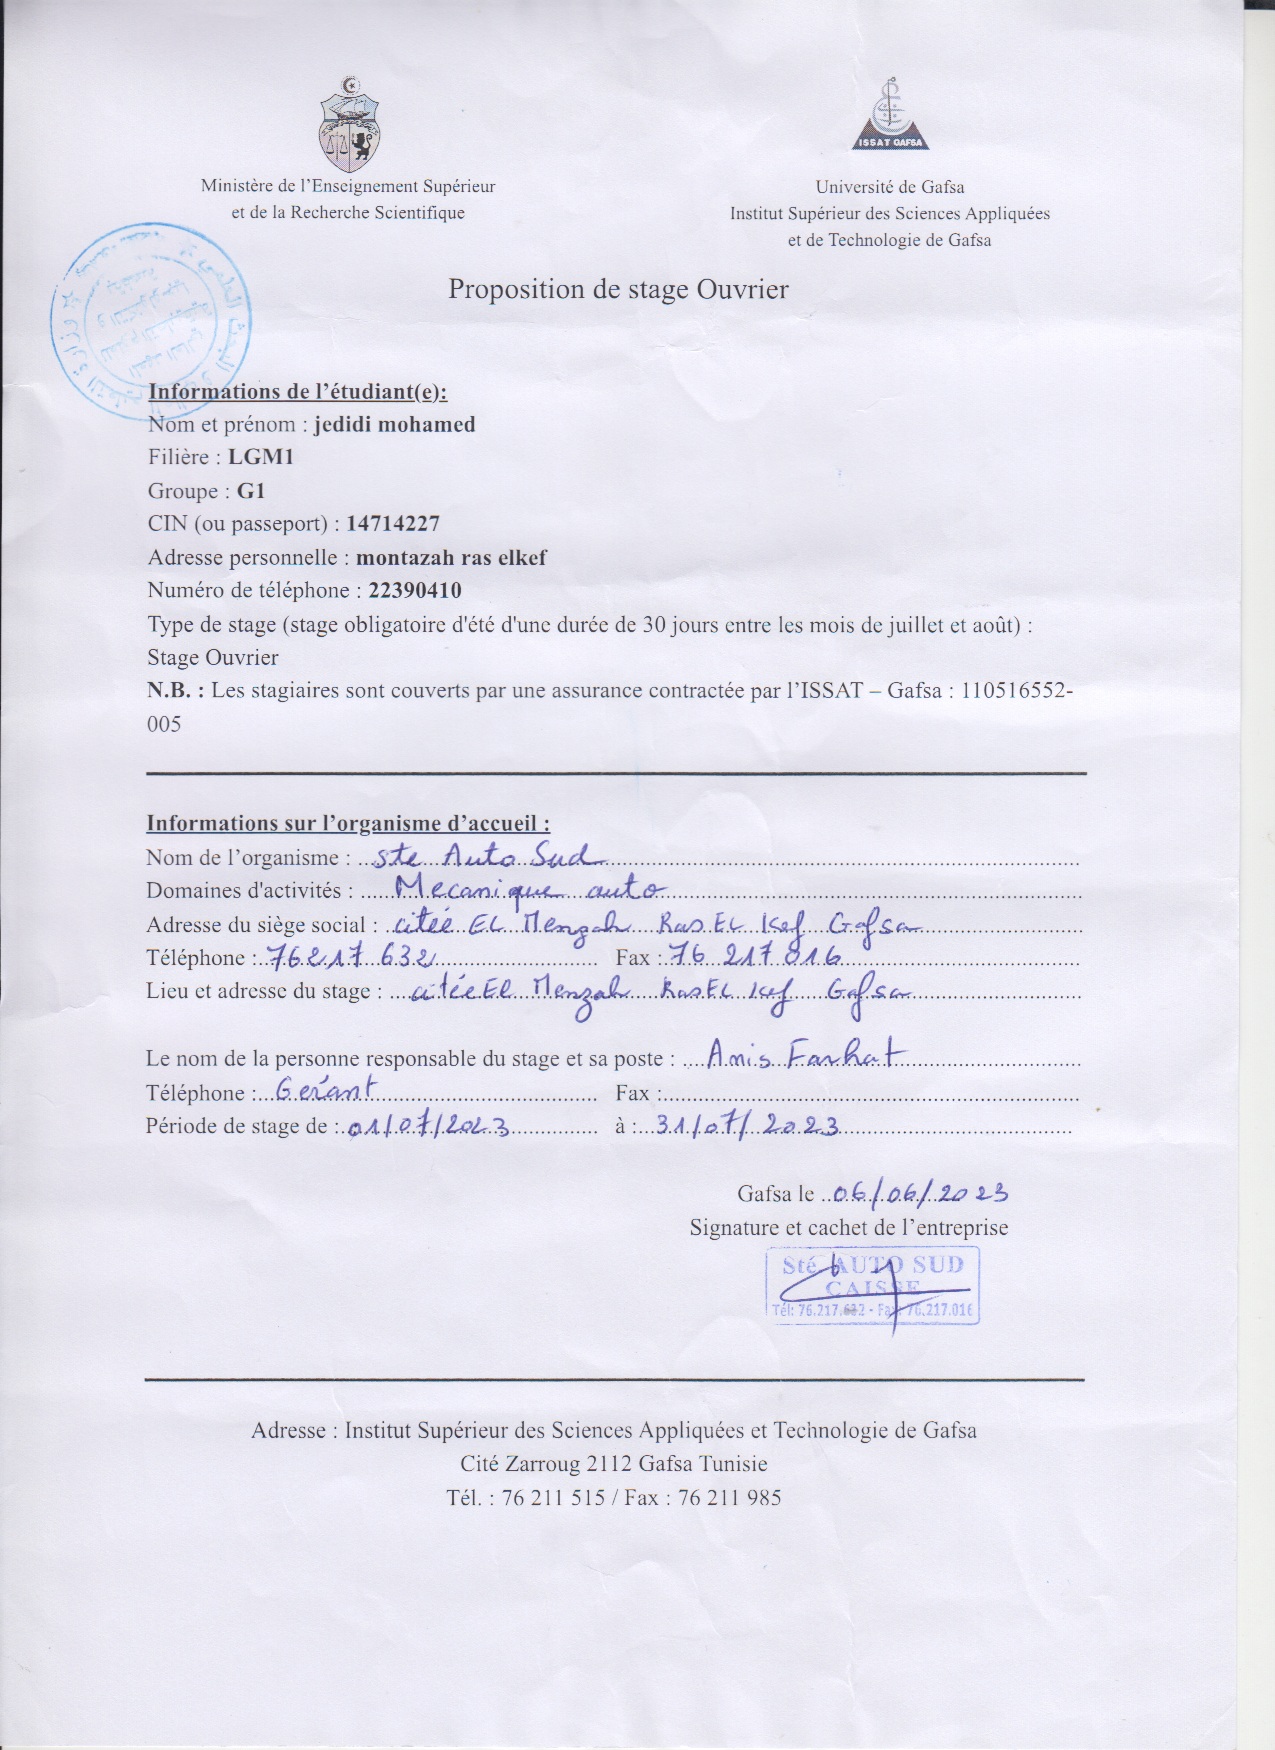 ISSAT GAFSA
Ministère de l'Enseignement Supérieur
et de la Recherche Scientifique
Université de Gafsa
Institut Supérieur des Sciences Appliquées
et de Technologie de Gafsa
Proposition de stage Ouvrier
Informations de l'étudiant(e):
Nom et prénom : jedidi mohamed
Filière : LGM1
Groupe : G1
CIN (ou passeport) : 14714227
Adresse personnelle : montazah ras elkef
Numéro de téléphone : 22390410
Type de stage (stage obligatoire d'été d'une durée de 30 jours entre les mois de juillet et août) :
Stage Ouvrier
N.B. : Les stagiaires sont couverts par une assurance contractée par l'ISSAT – Gafsa : 110516552-
005
Informations sur l'organisme d'accueil :
Nom de l'organisme : ste Auto Sud
Domaines d'activités : Mecanique auto
Adresse du siège social : citée EL Menzah Ras EL Kef Gafsa
Téléphone : 76 217 632 Fax : 76 217 016
Lieu et adresse du stage : citée El Menzah Ras EL Kef Gafsa
Le nom de la personne responsable du stage et sa poste : Anis Farhat
Téléphone : Gérant Fax :
Période de stage de : 01/07/2023 à : 31/07/2023
Gafsa le 06/06/2023
Signature et cachet de l'entreprise
Sté AUTO SUD
CAISSE
Tél: 76.217.632 - Fax: 76.217.016
Adresse : Institut Supérieur des Sciences Appliquées et Technologie de Gafsa
Cité Zarroug 2112 Gafsa Tunisie
Tél. : 76 211 515 / Fax : 76 211 985